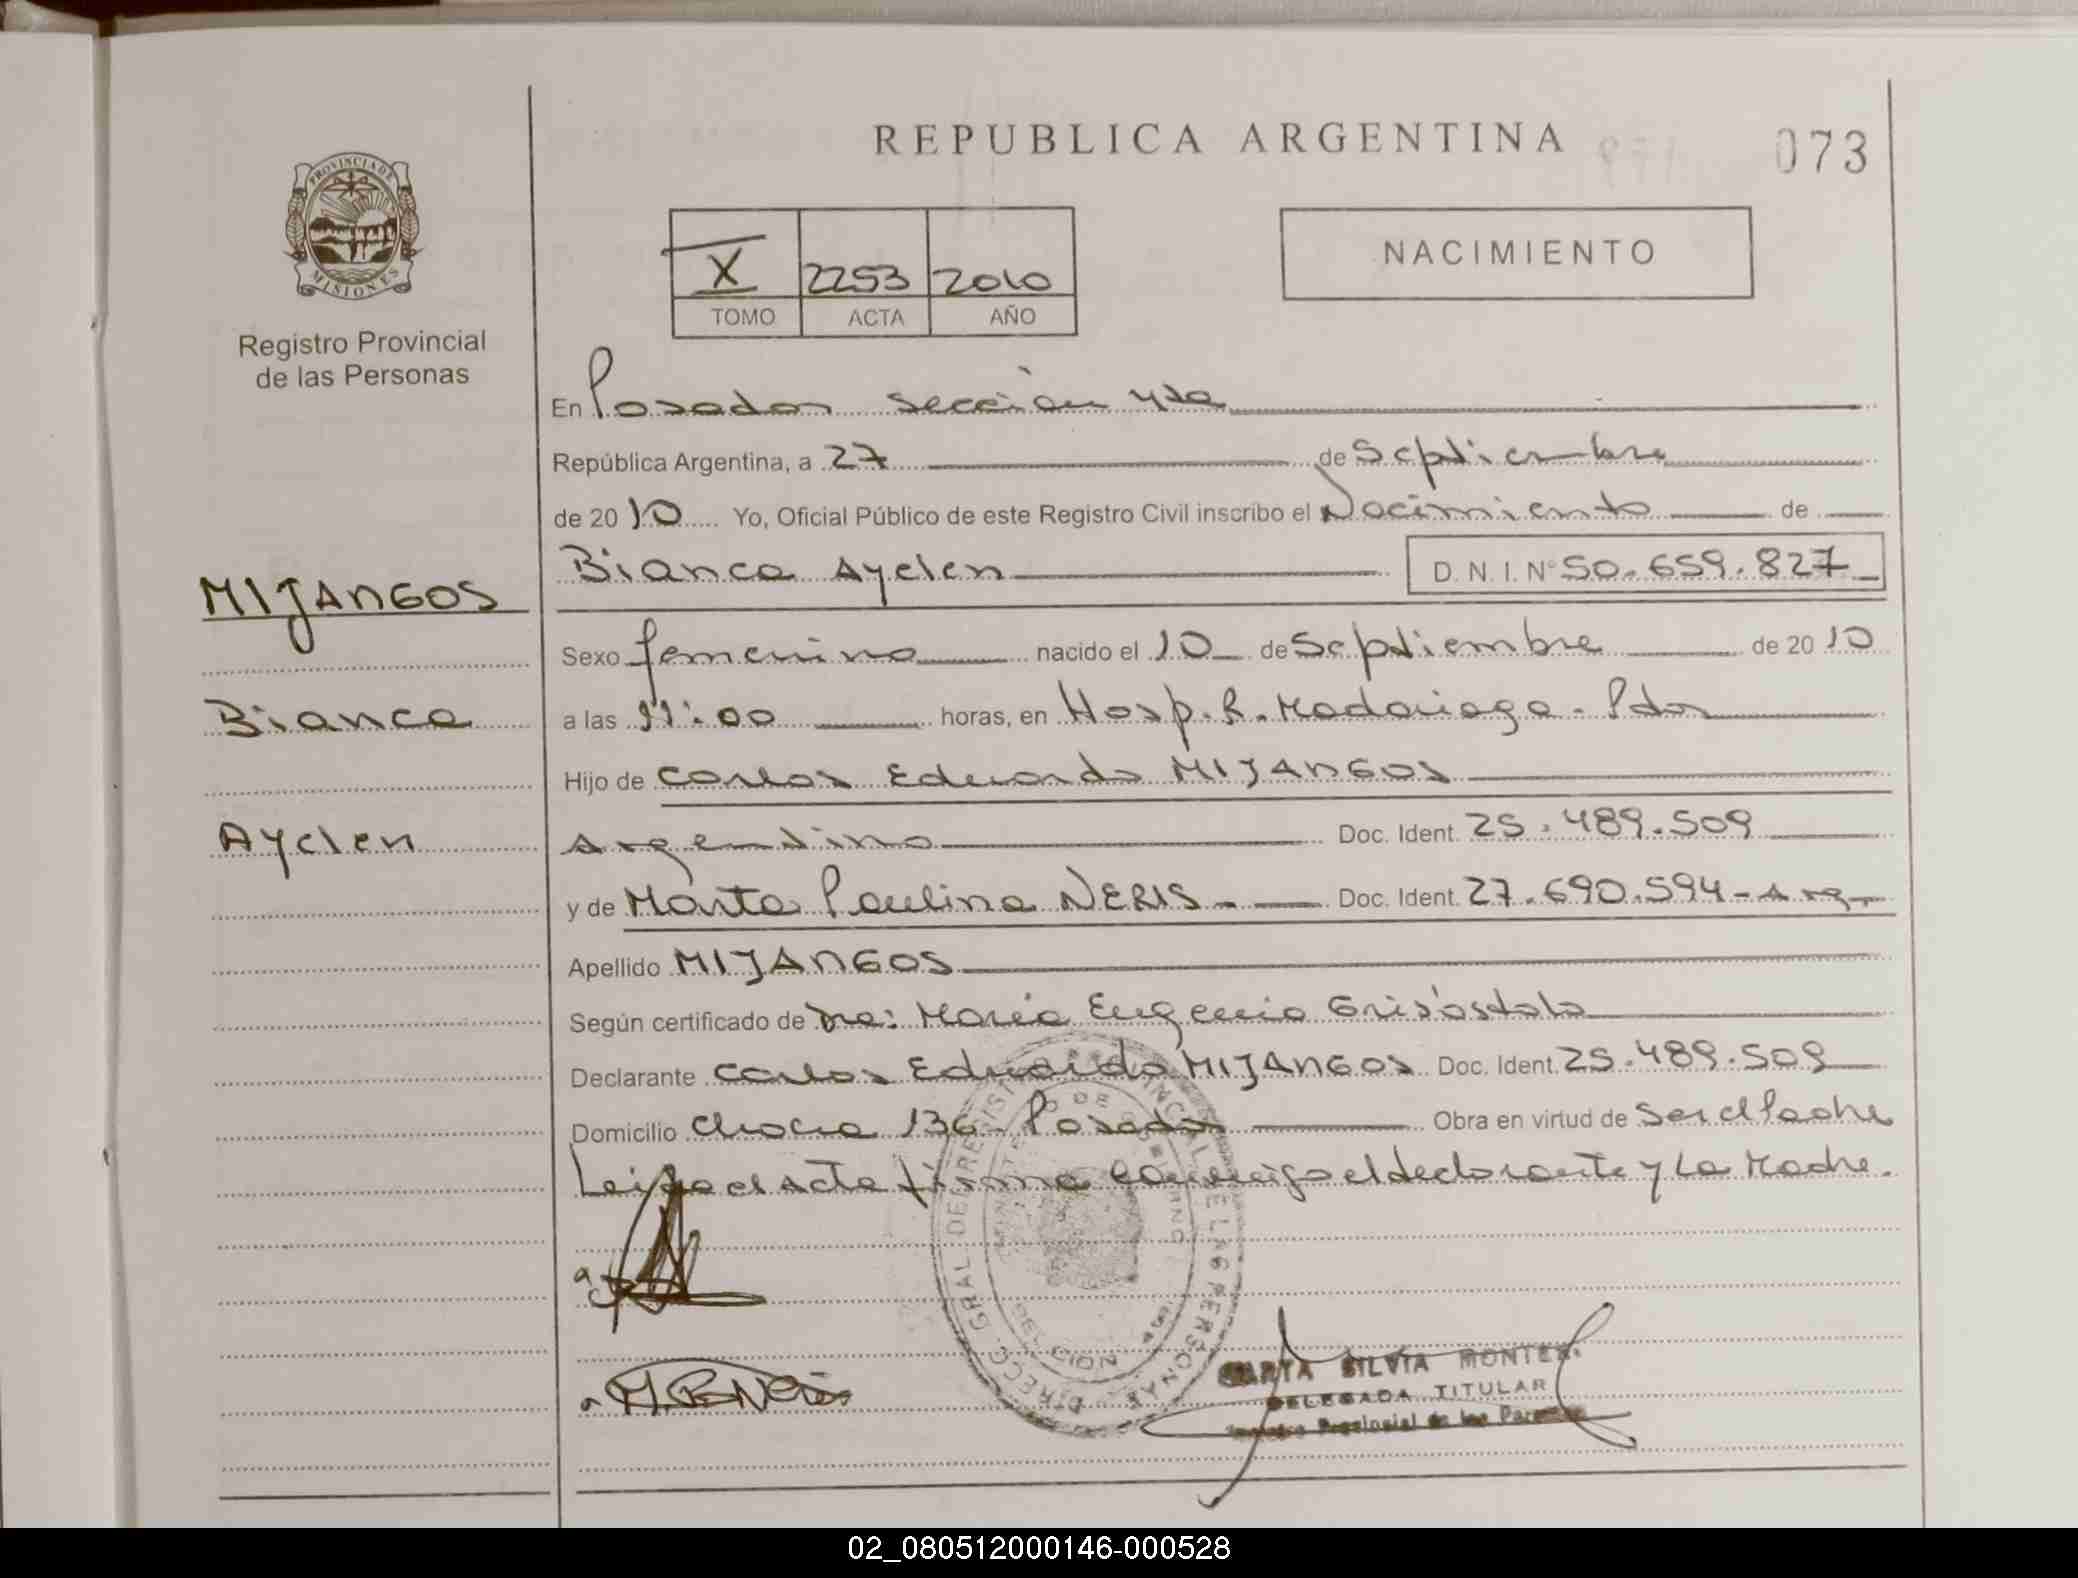 REPUBLICA ARGENTINA
073
PROVINCIA DE
MISIONES
Registro Provincial
de las Personas
X 2253 2010
TOMO ACTA AÑO
NACIMIENTO
En Posadas Sección 4ta
República Argentina, a 27 de Septiembre
de 2010 Yo, Oficial Público de este Registro Civil inscribo el Nacimiento de
Bianca Ayelen D.N.I. Nº 50.659.827
MIJANGOS
Bianca
Ayelen
Sexo femenino nacido el 10 de Septiembre de 2010
a las 11:00 horas, en Hosp. R. Madariaga - Pdas
Hijo de Carlos Eduardo MIJANGOS
Argentino Doc. Ident. 25.489.509
y de Marta Paulina NERIS - Doc. Ident. 27.690.594 - Arg.
Apellido MIJANGOS
Según certificado de Dra: María Eugenia Grisóstolo
Declarante Carlos Eduardo MIJANGOS Doc. Ident. 25.489.509
Domicilio Chacra 136 - Posadas Obra en virtud de Ser el Padre
Leida el Acta firma conmigo el declarante y La Madre.
DIRECC. GRAL. DE REGISTRO PROVINCIAL DE LAS PERSONAS
MINISTERIO DE GOBIERNO
M. P. Neris
MARTA SILVIA MONTIEL
DELEGADA TITULAR
Registro Provincial de las Personas
02_080512000146-000528